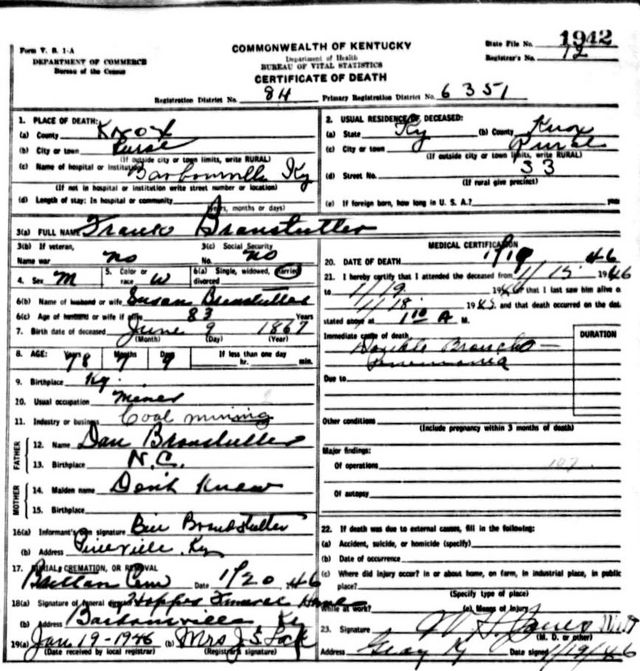 Form V. S. 1-A
DEPARTMENT OF COMMERCE
Bureau of the Census
COMMONWEALTH OF KENTUCKY
Department of Health
BUREAU OF VITAL STATISTICS
CERTIFICATE OF DEATH
State File No. 1942
Registrar's No. 12
Registration District No. 84 Primary Registration District No. 6351
1. PLACE OF DEATH:
(a) County Knox
(b) City or town Rural
(If outside city or town limits, write RURAL)
(c) Name of hospital or institution Barbourville Ky
(If not in hospital or institution write street number or location)
(d) Length of stay: In hospital or community
(Years, months or days)
2. USUAL RESIDENCE OF DECEASED:
(a) State Ky (b) County Knox
(c) City or town Rural
(If outside city or town limits, write RURAL)
(d) Street No. 33
(If rural give precinct)
(e) If foreign born, how long in U. S. A.? years
3(a) FULL NAME Frank Branstutter
3(b) If veteran, Name war no
3(c) Social Security No. no
4. Sex M 5. Color or race W 6(a) Single, widowed, married, divorced
6(b) Name of husband or wife Susan Branstutter
6(c) Age of husband or wife if alive 83 Years
7. Birth date of deceased June 9 1867
(Month) (Day) (Year)
8. AGE: Years 78 Months 7 Days 9 If less than one day hr. min.
9. Birthplace Ky.
10. Usual occupation Miner
11. Industry or business Coal mining
FATHER
12. Name Dan Branstutter
13. Birthplace N.C.
MOTHER
14. Maiden name Don't Know
15. Birthplace
16(a) Informant's own signature Bill Branstutter
(b) Address Pineville, Ky
17. BURIAL, CREMATION, OR REMOVAL
Cem Date 1/20 46
18(a) Signature of funeral director Hopper Funeral Home
(b) Address Barbourville Ky
19(a) Jan 19-1946 (b) Mrs J. S.
(Date received by local registrar) (Registrar's signature)
MEDICAL CERTIFICATION
20. DATE OF DEATH 1/19 46
21. I hereby certify that I attended the deceased from 1/15 1946
to 1/19 1946 that I last saw him alive on
1/18 and that death occurred on the date
stated above at 1 10 A M.
Immediate cause of death DURATION
Double Broncho-
pneumonia
Due to
Other conditions
(Include pregnancy within 3 months of death)
Major findings:
Of operations 107
Of autopsy
22. If death was due to external causes, fill in the following:
(a) Accident, suicide, or homicide (specify)
(b) Date of occurrence
(c) Where did injury occur? in or about home, on farm, in industrial place, in public
place?
(Specify type of place)
While at work? (e) Means of injury
23. Signature
(M. D. or other)
Address Gray Ky Date signed 1/19/46